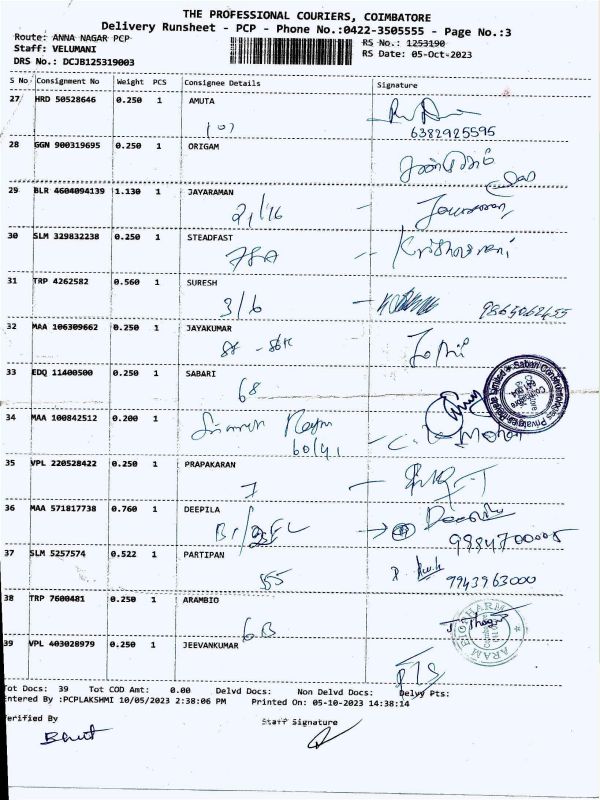 THE PROFESSIONAL COURIERS, COIMBATORE
Delivery Runsheet - PCP - Phone No.:0422-3505555 - Page No.:3
Route: ANNA NAGAR PCP
RS No.: 1253190
Staff: VELUMANI
RS Date: 05-Oct-2023
DRS No.: DCJB125319003
S No Consignment No Weight PCS Consignee Details Signature
27 HRD 50528646 0.250 1 AMUTA
6382925595
28 GGN 900319695 0.250 1 ORIGAM
29 BLR 4604094139 1.130 1 JAYARAMAN
21/16
30 SLM 329832238 0.250 1 STEADFAST
78A
31 TRP 4262582 0.560 1 SURESH
3/6 9865062455
32 MAA 106309662 0.250 1 JAYAKUMAR
33 EDQ 11400500 0.250 1 SABARI
68
34 MAA 100842512 0.200 1
60/41
35 VPL 220528422 0.250 1 PRAPAKARAN
7
36 MAA 571817738 0.760 1 DEEPILA
9884700005
37 SLM 5257574 0.522 1 PARTIPAN
55 7943963000
38 TRP 7600481 0.250 1 ARAMBIO
6B
39 VPL 403028979 0.250 1 JEEVANKUMAR
Tot Docs: 39 Tot COD Amt: 0.00 Delvd Docs: Non Delvd Docs: Delvy Pts:
Entered By :PCPLAKSHMI 10/05/2023 2:38:06 PM Printed On: 05-10-2023 14:38:14
Verified By Staff Signature